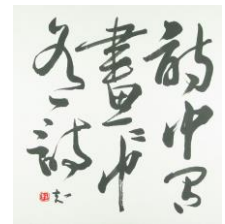 詩中有
畫々中
有詩